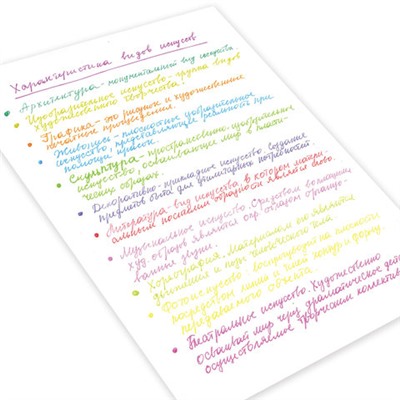 Характеристика видов искусств
Архитектура - монументальный вид искусства.
Изобразительное искусство - группа видов
художественного творчества.
Графика - это рисунок и художественные
печатные произведения.
Живопись - плоскостное изобразительное
искусство, представляющее реальность при
помощи красок.
Скульптура - пространственно-изобразительное
искусство, осваивающее мир в пласти-
ческих образах.
Декоративно-прикладное искусство, создание
предметов быта для утилитарных потребностей.
Литература - вид искусства, в котором матери-
альным носителем образности является слово.
Музыкальное искусство. Средством воплощения
худ. образов являются опр. образом организо-
ванные звуки.
Хореография. Материалом являются
движения и позы человеческого тела
Фотоискусство: воспроизведение на плоскости
посредством линии и теней контур и форму
передаваемого объекта.
Театральное искусство. Художественно
осваивает мир через драматическое дейс
осуществляемое творческим коллектив